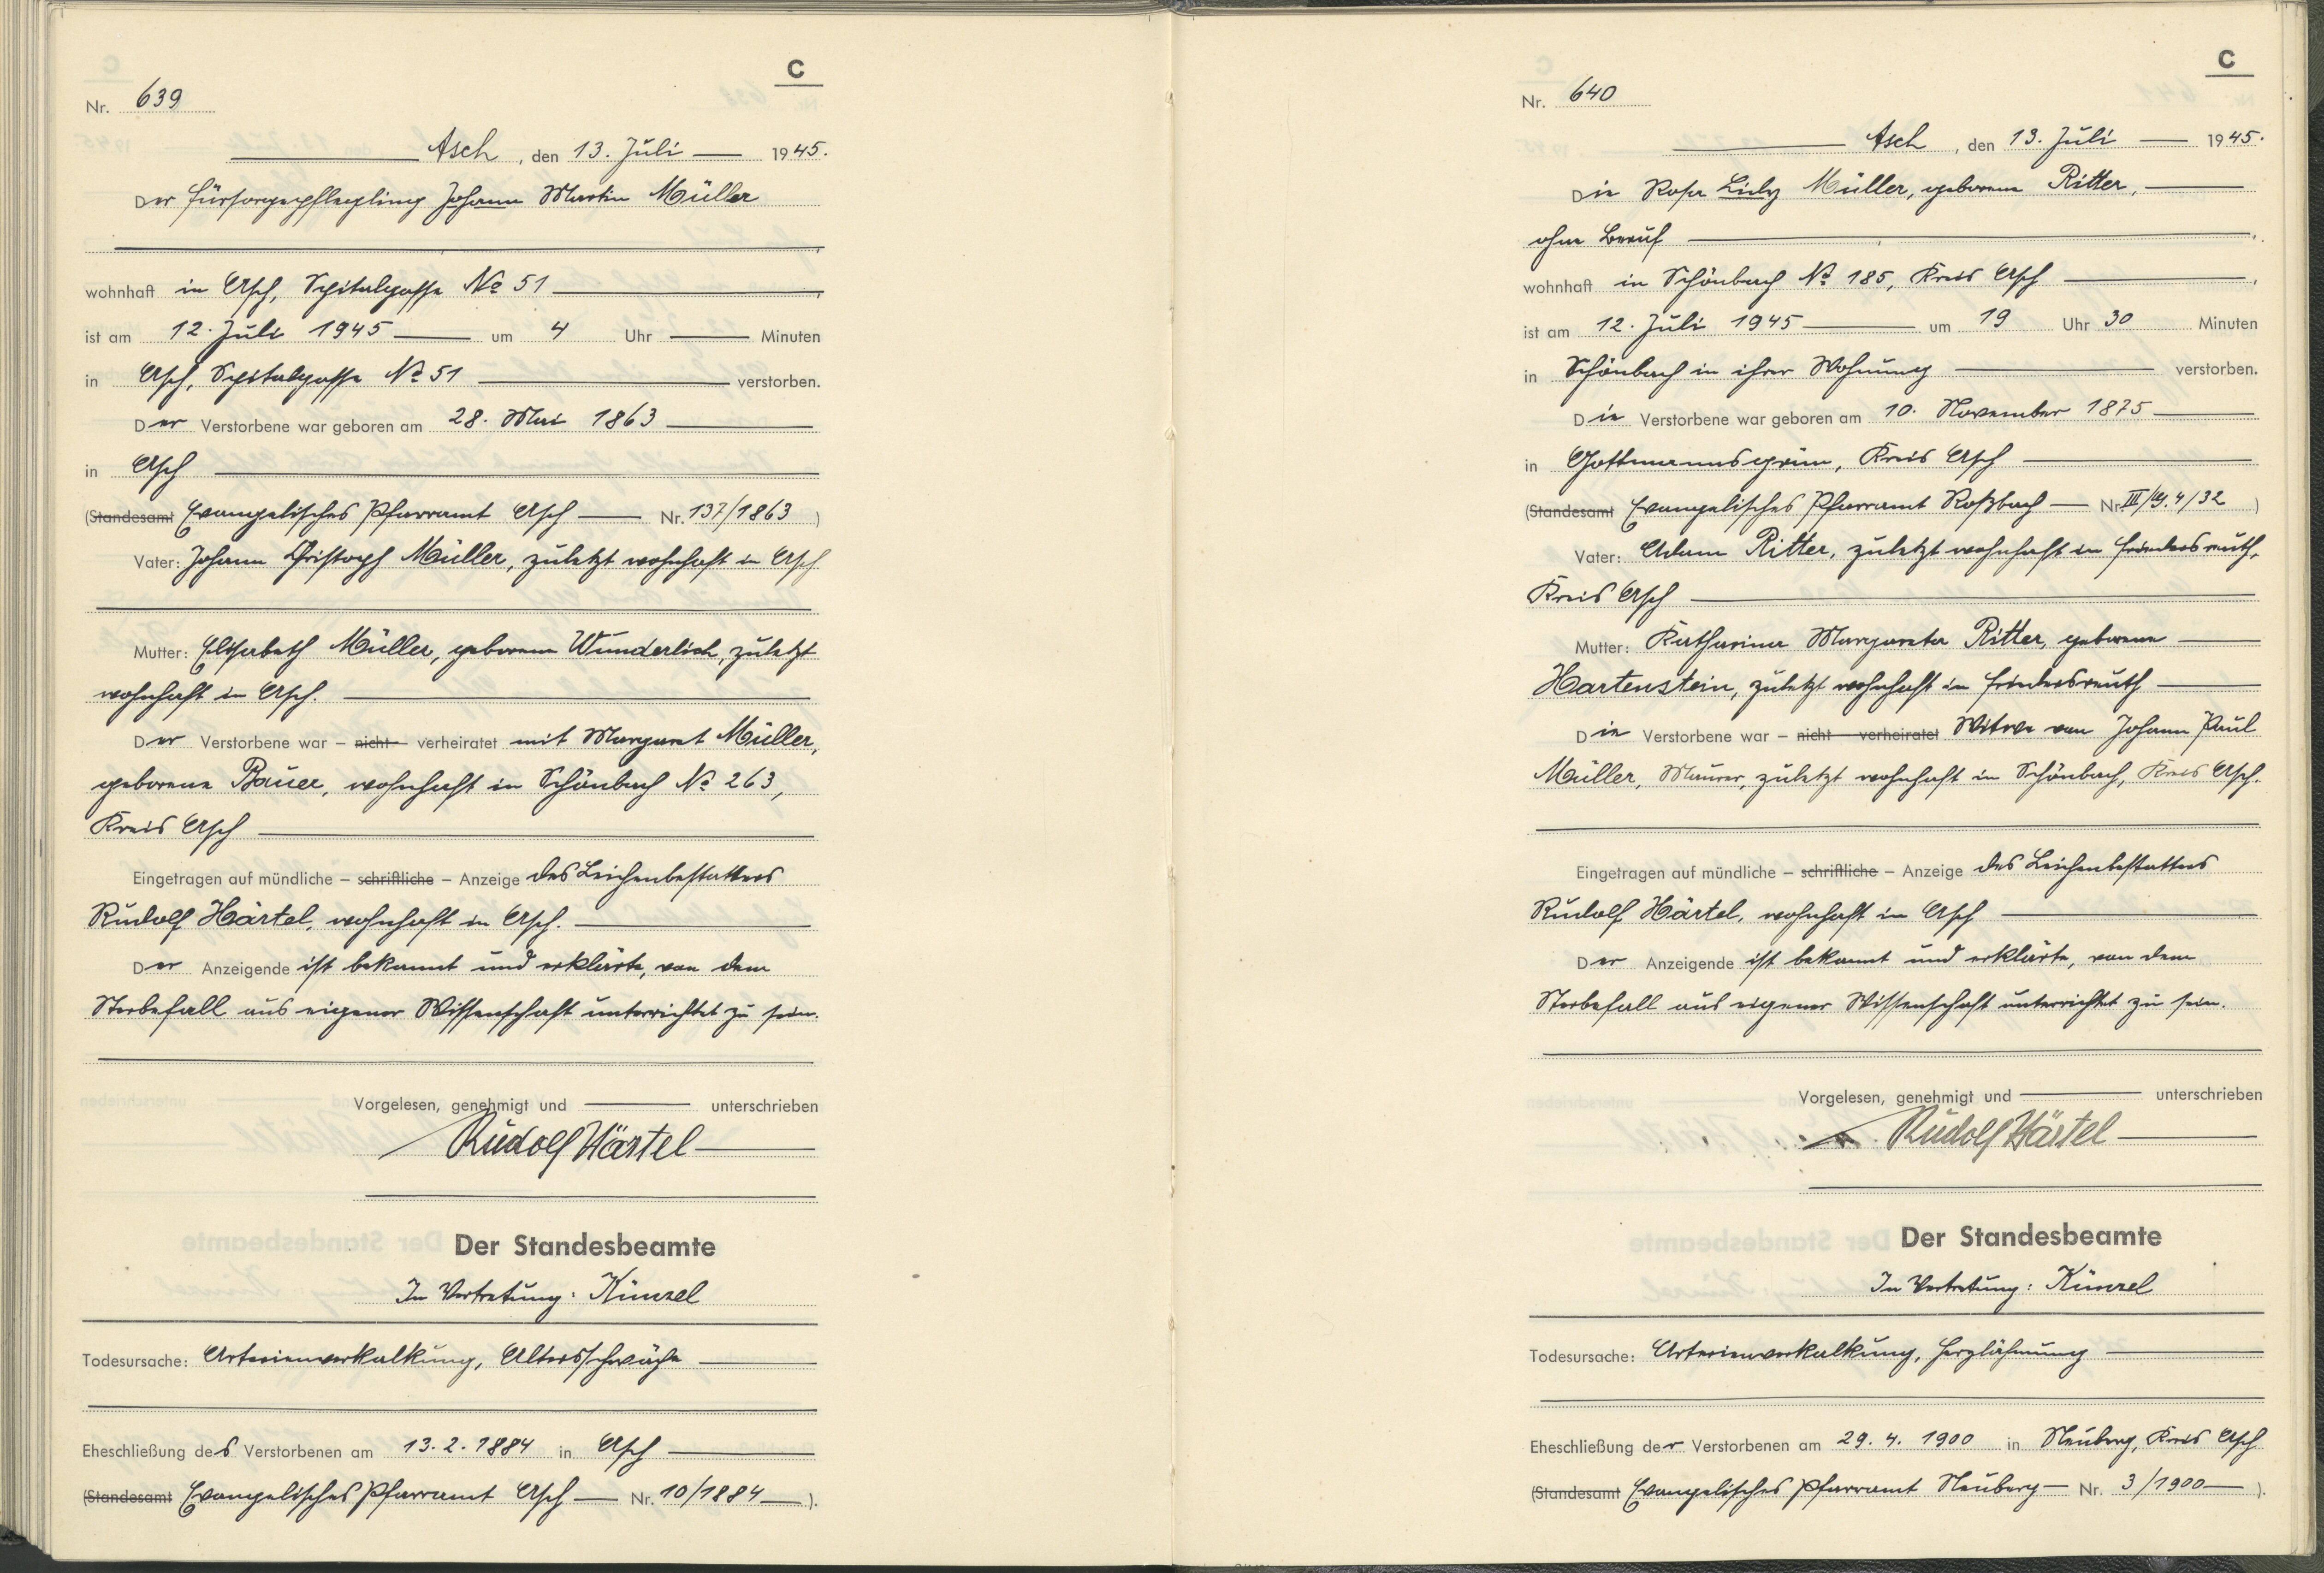 C
Nr. 639
Asch, den 13. Juli 1945.
Der Fürsorgepflegling Johann Martin Müller
wohnhaft in Asch, Spitalgasse No 51
ist am 12. Juli 1945 um 4 Uhr Minuten
in Asch, Spitalgasse No 51 verstorben.
Der Verstorbene war geboren am 28. Mai 1863
in Asch
(Standesamt Evangelisches Pfarramt Asch Nr. 137/1863 )
Vater: Johann Christoph Müller, zuletzt wohnhaft in Asch
Mutter: Elisabeth Müller, geborene Wunderlich, zuletzt
wohnhaft in Asch.
Der Verstorbene war – nicht – verheiratet mit Margaret Müller,
geborene Bauer, wohnhaft in Schönbach No 263,
Kreis Asch
Eingetragen auf mündliche – schriftliche – Anzeige des Leichenbestatters
Rudolf Härtel, wohnhaft in Asch.
Der Anzeigende ist bekannt und erklärte, von dem
Sterbefall aus eigener Wissenschaft unterrichtet zu sein.
Vorgelesen, genehmigt und unterschrieben
Rudolf Härtel
Der Standesbeamte
In Vertretung: Künzel
Todesursache: Arterienverkalkung, Altersschwäche
Eheschließung des Verstorbenen am 13. 2. 1884 in Asch
(Standesamt Evangelisches Pfarramt Asch Nr. 10/1884 ).
C
Nr. 640
Asch, den 13. Juli 1945.
Die Rosa Lidy Müller, geborene Ritter,
ohne Beruf
wohnhaft in Schönbach No 185, Kreis Asch
ist am 12. Juli 1945 um 19 Uhr 30 Minuten
in Schönbach in ihrer Wohnung verstorben.
Die Verstorbene war geboren am 10. November 1875
in Gottmannsgrün, Kreis Asch
(Standesamt Evangelisches Pfarramt Roßbach Nr. III/Gg. 4/32 )
Vater: Adam Ritter, zuletzt wohnhaft in Friedersreuth,
Kreis Asch
Mutter: Katharina Margareta Ritter, geborene
Hartenstein, zuletzt wohnhaft in Friedersreuth
Die Verstorbene war – nicht – verheiratet Witwe von Johann Paul
Müller, Maurer, zuletzt wohnhaft in Schönbach, Kreis Asch.
Eingetragen auf mündliche – schriftliche – Anzeige des Leichenbestatters
Rudolf Härtel, wohnhaft in Asch
Der Anzeigende ist bekannt und erklärte, von dem
Sterbefall aus eigener Wissenschaft unterrichtet zu sein.
Vorgelesen, genehmigt und unterschrieben
Rudolf Härtel
Der Standesbeamte
In Vertretung: Künzel
Todesursache: Arterienverkalkung, Herzlähmung
Eheschließung der Verstorbenen am 29. 4. 1900 in Neuberg, Kreis Asch
(Standesamt Evangelisches Pfarramt Neuberg Nr. 3/1900 ).